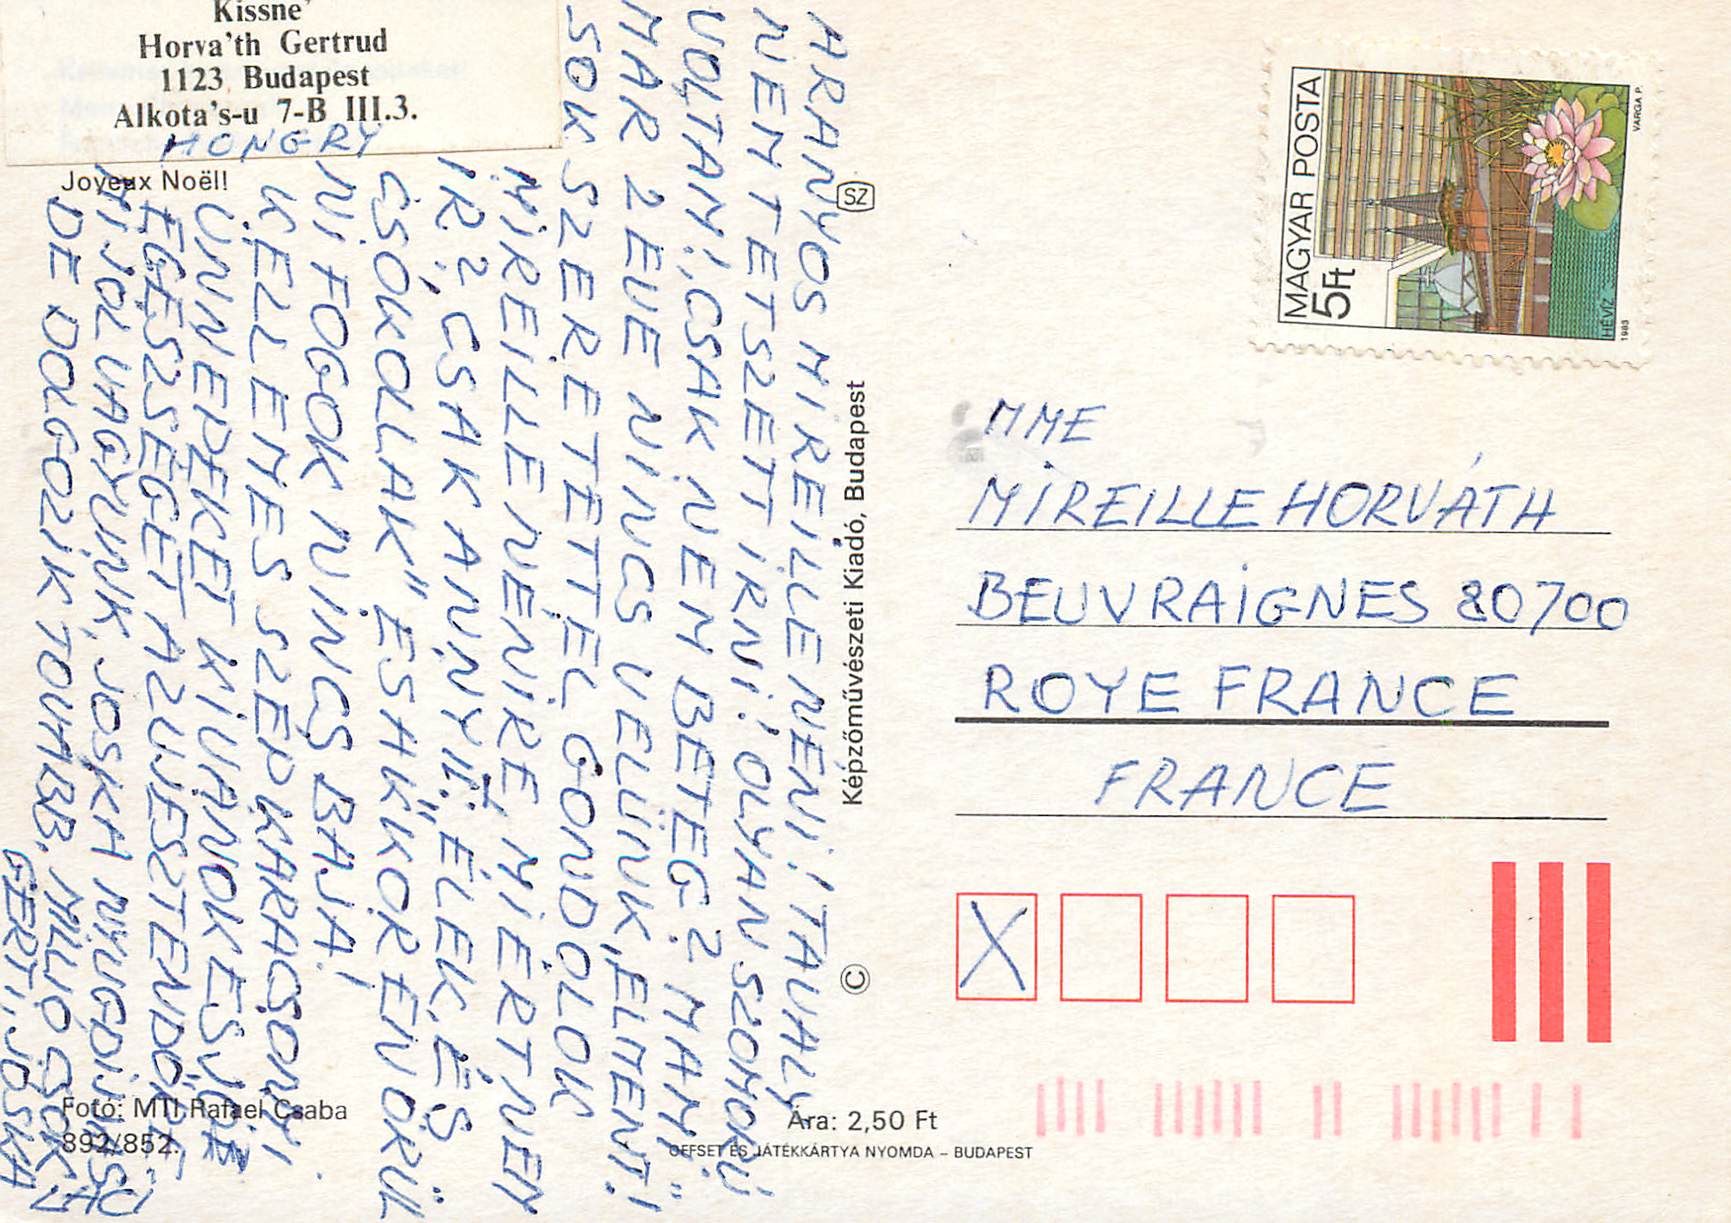 Kissne'
Horva'th Gertrud
1123 Budapest
Alkota's-u 7-B III.3.
HONGRY
Joyeux Noël!
ARANYOS MIREILLE NENI! TAVALY
NEM TETSZETT IRNI! OLYAN SZOMORÚ
VOLTAM!, CSAK NEM BETEG? "MAMI"
MAR 2 EVE NINCS VELÜNK, ELMENT!
SOK SZERETETTEL GONDOLOK
MIREILLE NENIRE, MIERT NEM
IR?, CSAK ANNYIT: "ÉLEK, ÉS
CSÓKOLLAK" ES AKKOR EN ÖRÜL
NI FOGOK NINCS BAJA!
KELLEMES SZEP KARACSONYI
ÜNNEPEKET KIVANOK ES JO
EGESZSEGET AZ UJESZTENDÖRE
MI JOL VAGYUNK, JOSKA NYUGDIJAS
DE DOLGOZIK TOVABB. MILLIO CSOK:
GERTI, JOSKA
Fotó: MTI Rafael Csaba
892/852.
SZ
Képzőművészeti Kiadó, Budapest
©
Ára: 2,50 Ft
OFFSET ÉS JÁTÉKKÁRTYA NYOMDA – BUDAPEST
MAGYAR POSTA
5Ft
HÉVÍZ
1983
VARGA P.
MME
MIREILLE HORVÁTH
BEUVRAIGNES 80700
ROYE FRANCE
FRANCE
X